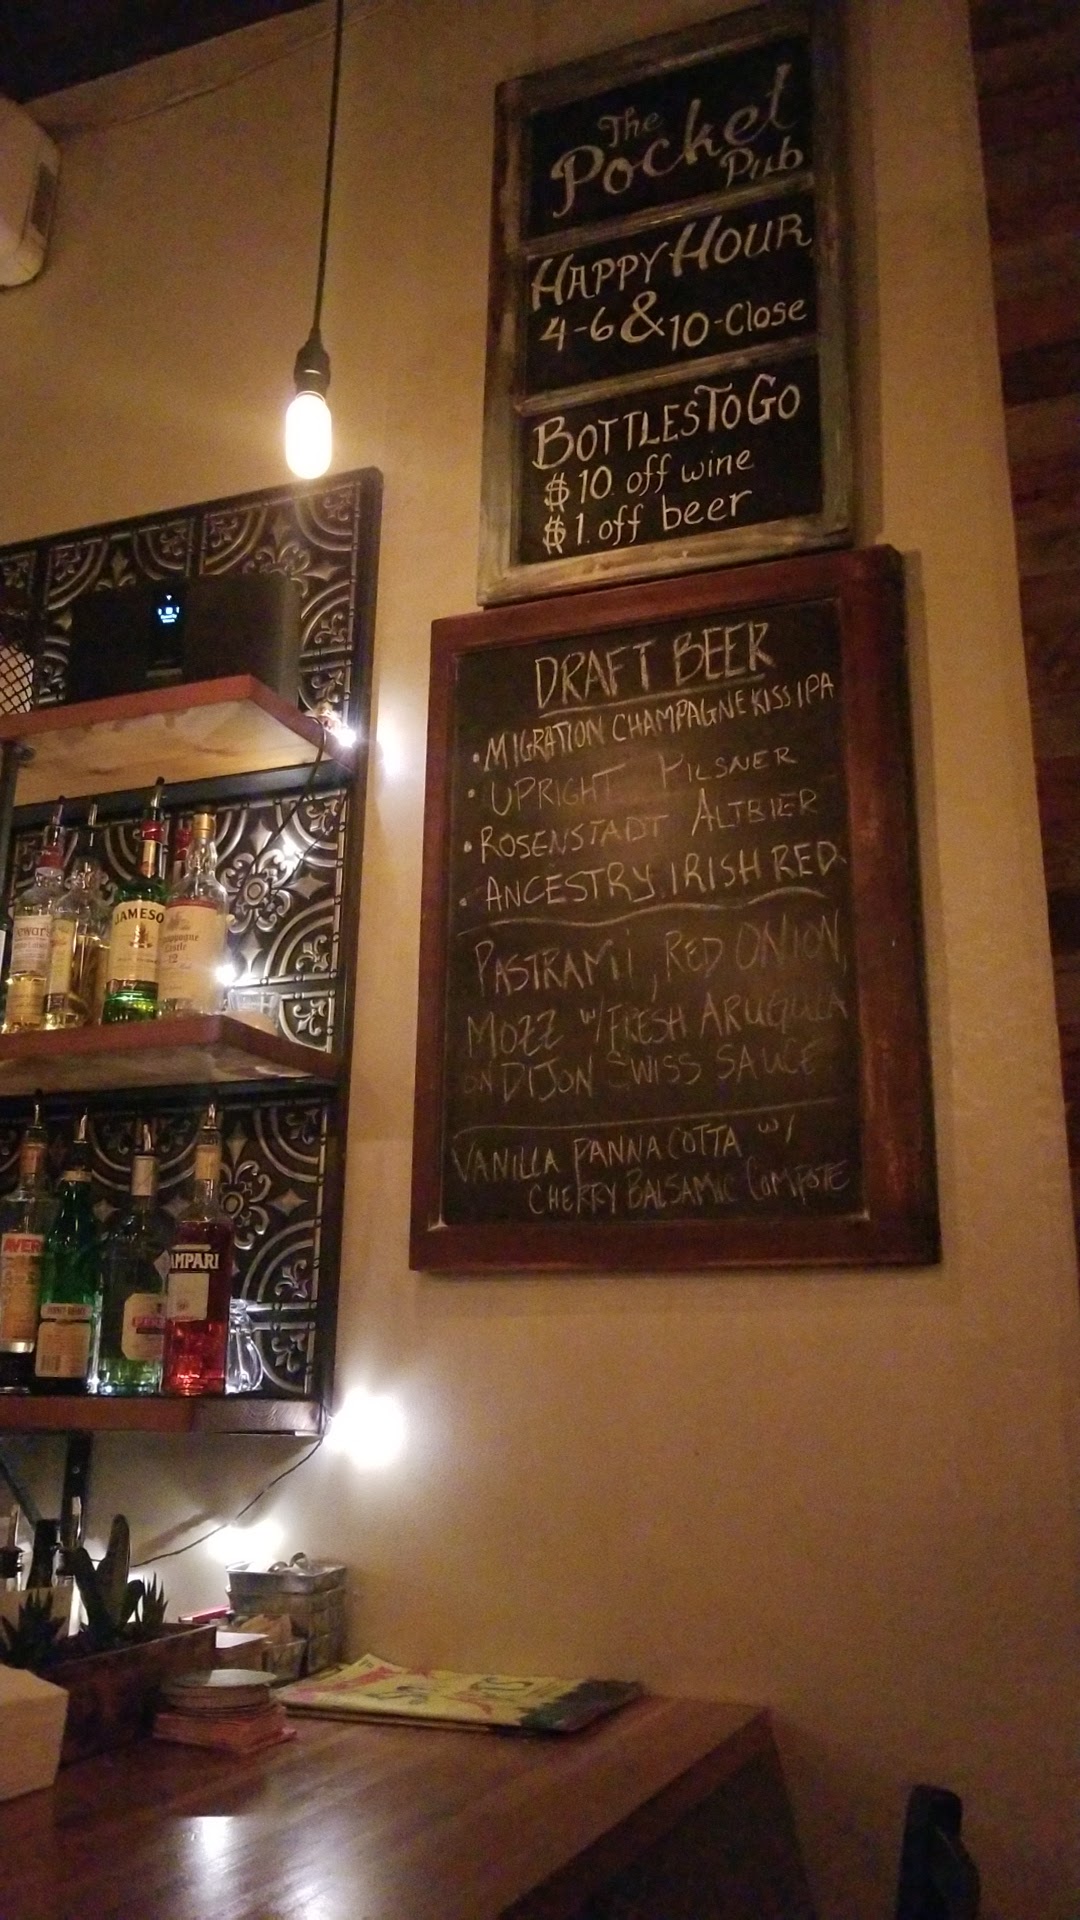 The
Pocket
Pub
HAPPY HOUR
4-6 & 10-Close
BOTTLES TO GO
$10 off wine
$1 off beer
DRAFT BEER
• MIGRATION CHAMPAGNE KISS IPA
• UPRIGHT PILSNER
• ROSENSTADT ALTBIER
• ANCESTRY IRISH RED
PASTRAMI, RED ONION,
MOZZ W/ FRESH ARUGULA
ON DIJON SWISS SAUCE
VANILLA PANNA COTTA w/
CHERRY BALSAMIC COMPOTE
JAMESO
12
AVER
AMPARI